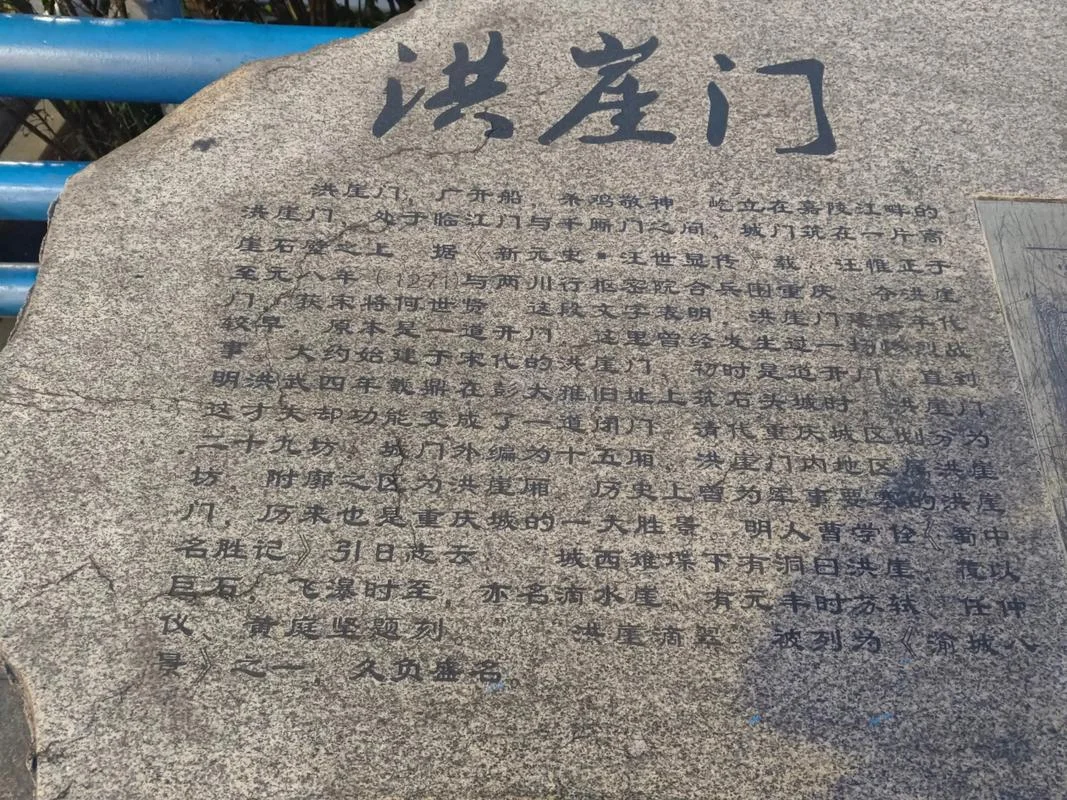 洪崖门
洪崖门，广开船，杀鸡敬神。屹立在嘉陵江畔的
洪崖门，处于临江门与千厮门之间，城门筑在一片高
崖石壁之上。据《新元史·汪世显传》载，汪惟正于
至元八年（1271）与两川行枢密院合兵围重庆，夺洪崖
门，获宋将何世贤。这段文字表明，洪崖门建筑年代
较早，原本是一道开门，这里曾经发生过一场惨烈战
事。大约始建于宋代的洪崖门，初时是道开门，直到
明洪武四年戴鼎在彭大雅旧址上筑石头城时，洪崖门
这才失却功能变成了一道闭门。清代重庆城区划分为
二十九坊，城门外编为十五厢。洪崖门内地区属洪崖
坊，附廓之区为洪崖厢。历史上曾为军事要塞的洪崖
门，历来也是重庆城的一大胜景。明人曹学佺《蜀中
名胜记》引旧志云： 城西雉堞下有洞曰洪崖，覆以
巨石，飞瀑时至，亦名滴水崖。有元丰时苏轼、任仲
仪、黄庭坚题刻。 洪崖滴翠 被列为《渝城八
景》之一，久负盛名